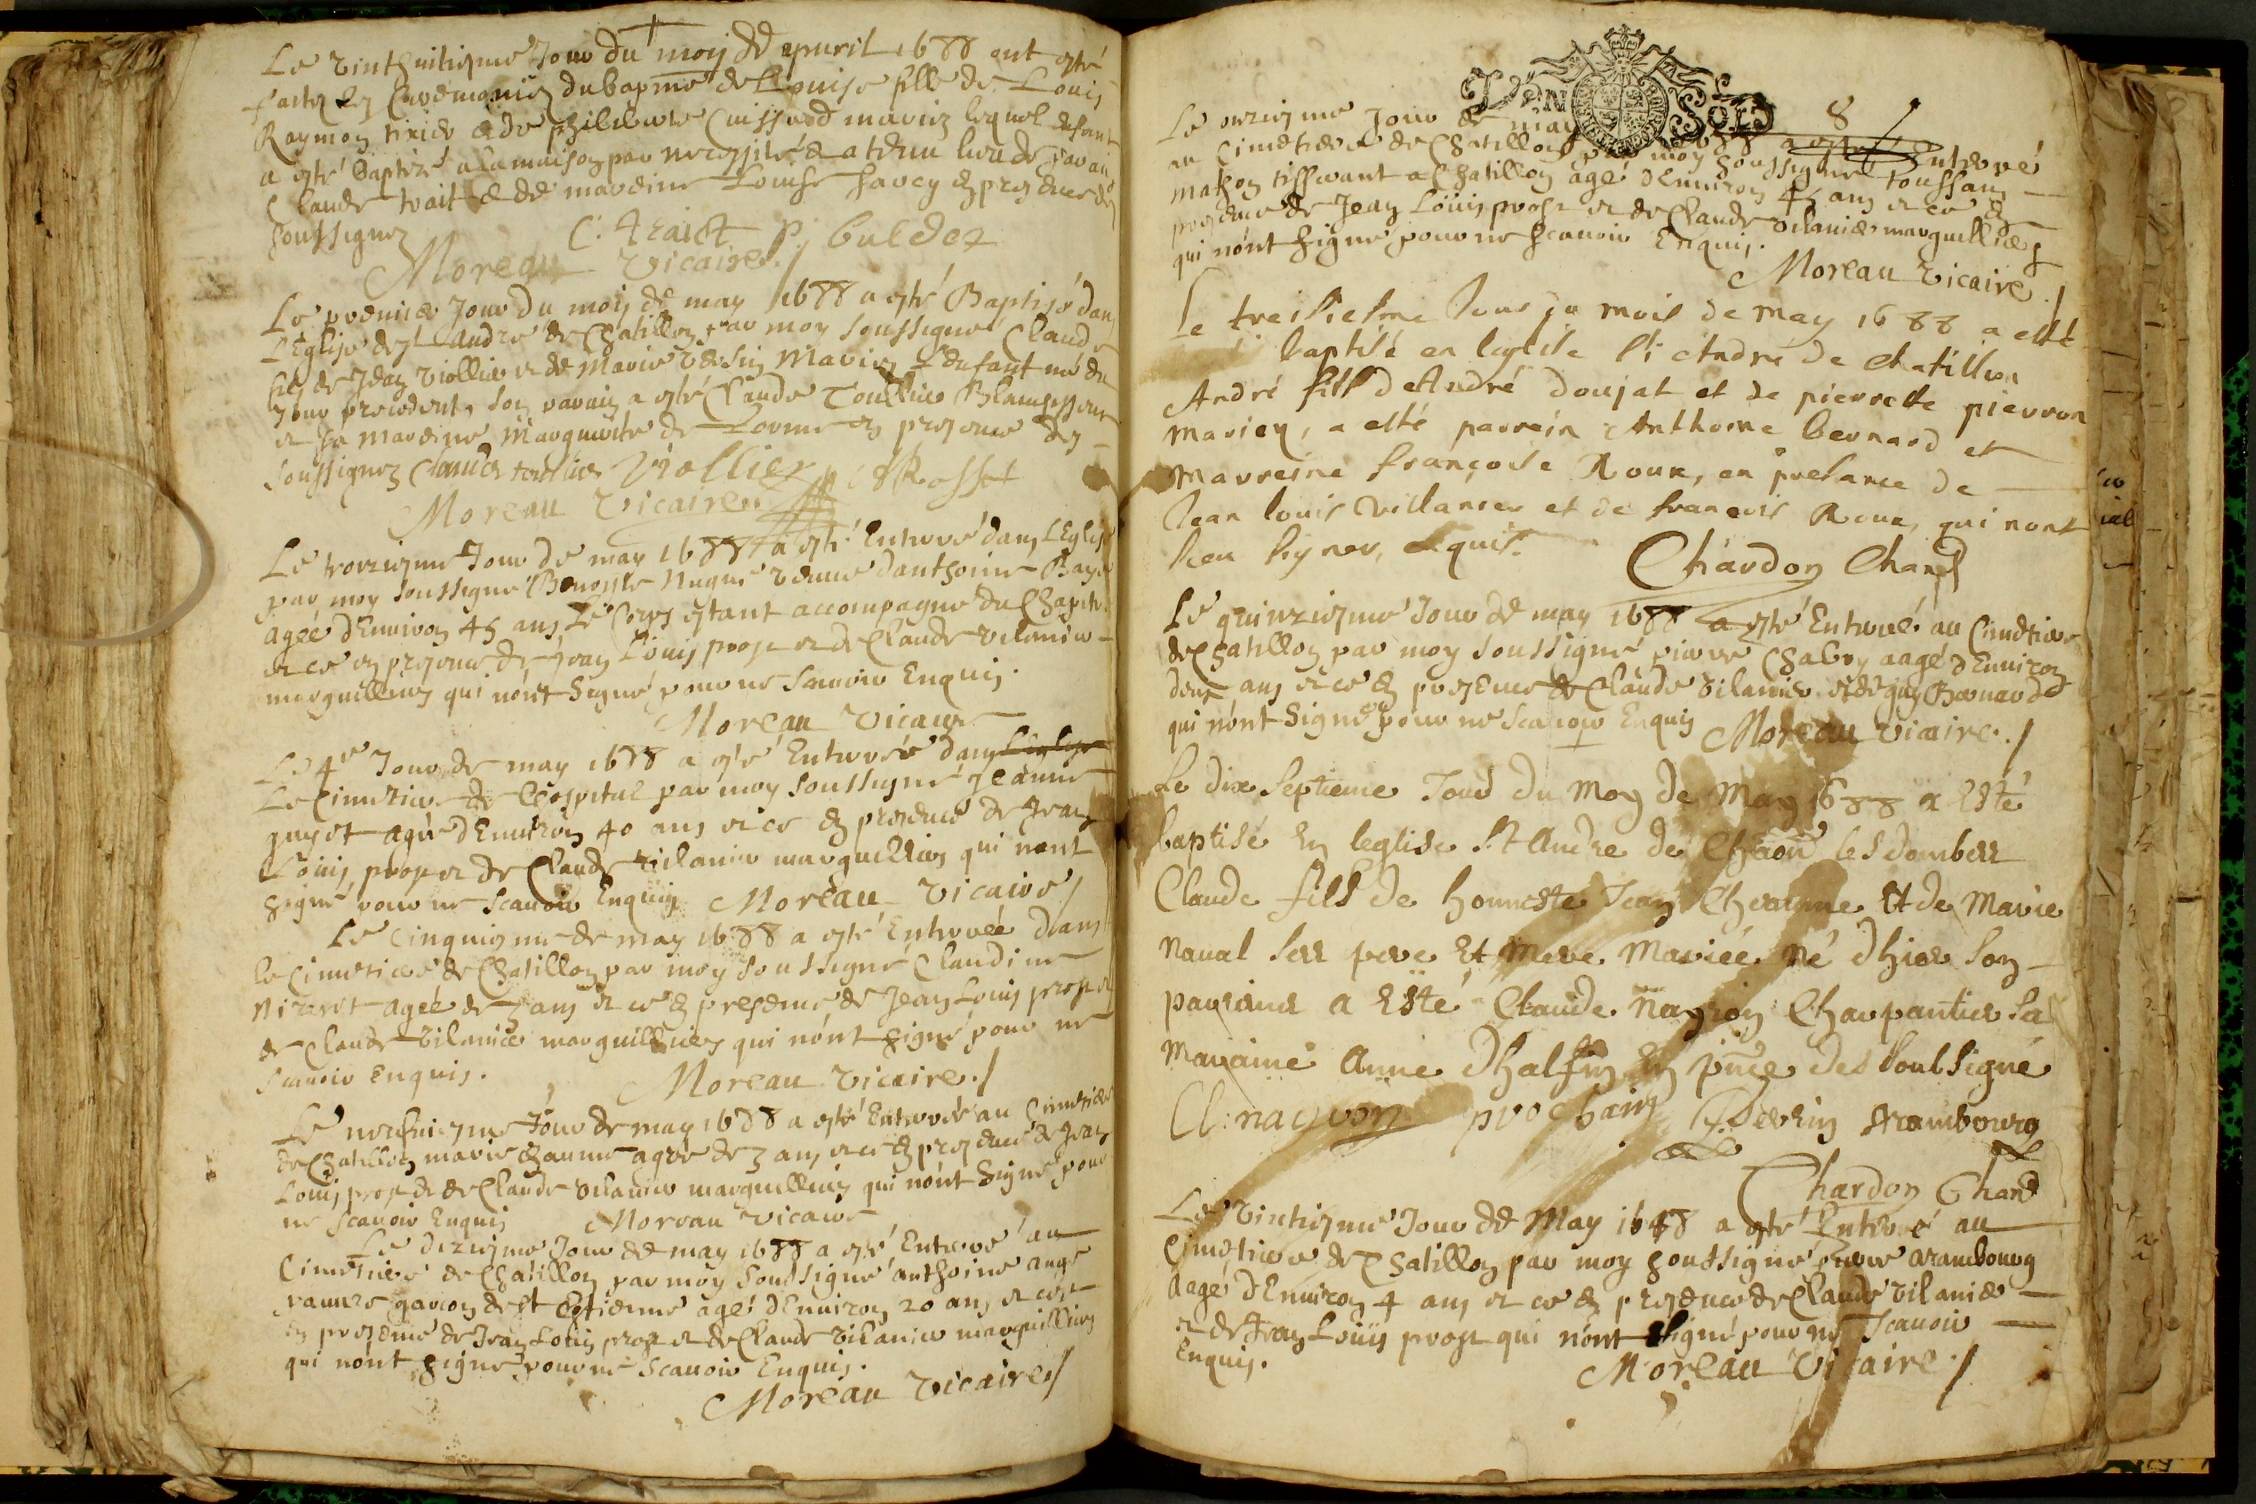 Le vinthuitiesme Jour du moy de apvril 1688 ont esté
faites les Ceremonies du bapme de Louise fille de Louis
Raymon tixier et de philiberte Cuissard mariez lequel enfant
a esté Baptizé a la maison par necessité et a tenu lieu de parain
Claude trait et de mareine Louise Savey en presence des
soussignez
C. traict P. buledez
Moreau vicaire /
Le premier Jour du mois de may 1688 a esté Baptisé dans
L'Eglise de st André de Chatillon par moy soussigné Claude
fils de Jean viollier et de Marie Mariez L'enfant né du
Jour precedent, son parain a esté Claude
et sa mareine Marguerite de Lorme en presence des
soussignez Claude Viollier Rosset
Moreau Vicaire
Le troiziesme Jour de may 1688 a esté Enterré dans L'Eglise
par moy soussigné Benoiste veuve d'anthoine
agée d'Environ 45 ans Le Corps estant accompagné du Chapitre
et ce en presence de Jean Louis prost et de Claude vilanier
marguilliers qui n'ont Signé pour ne Scavoir Enquis.
Moreau Vicaire
Le 4e Jour de may 1688 a esté Enterrée dans L'eglise
Le Cimetiere de L'hospital par moy soussigné Jeanne
guyot agée d'Environ 40 ans et ce en presence de Jean
Louis prost et de Claude vilanier marguilliers qui nont
signé pour ne Scavoir Enquis Moreau Vicaire /
Le Cinquiesme de may 1688 a esté Enterrée dans
le Cimetiere de Chatillon par moy soussigné Claudine
agée de 7 ans et ce en presence de Jean Louis prost et
de Claude vilanier marguilliers qui n'ont signé pour ne
Scavoir Enquis.
Moreau vicaire. /
Le neufviesme Jour de may 1688 a esté Enterrée au Cimetiere
de Chatillon marie agée de 3 ans et ce en presence de Jean
Louis prost et de Claude vilanier marguilliers qui n'ont Signé pour
ne Scavoir Enquis Moreau vicaire
Le diziesme Jour de may 1688 a esté Enterré au
Cimetiere de Chatillon par moy soussigné anthoine
pauvre garcon de st Estienne agé d'Environ 20 ans et ce
en presence de Jean Louis prost et de Claude vilanier marguilliers
qui n'ont signé pour ne Scavoir Enquis.
Moreau vicaire /
DEN SOLS
8
Le onziesme Jour de may 1688 a esté Enterré
au Cimetiere de Chatillon par moy soussigné toussans
tisserant a Chatillon agé d'Environ 45 ans et ce en
presence de Jean Louis prost et de Claude vilanier marguilliers
qui n'ont signé pour ne scavoir Enquis.
Moreau Vicaire. /
Le treisiesme Jour du mois de may 1688 a esté
baptisé en leglise St André de Chatillon
André fils d'André doujat et de pierrette pierron
mariez, a esté parrein Anthoine bernard et
marreine françoise Roux, en presance de
Jean louis Villanier et de françois Roux, qui nont
sceu signer, enquis.
Chardon Chan
Le quinziesme Jour de may 1688 a esté Enterré au Cimetiere
de Chatillon par moy soussigné pierre Chabry aagé d'Environ
deux ans et ce en presence de Claude vilanier et de guy Bernard
qui n'ont Signé pour ne scavoir Enquis Moreau vicaire. /
Le dix septieme Jour du Moy de May 1688 a Esté
baptisé En leglise St André de Chaon les dombes
Claude fils de honneste Jean Chevanne Et de Marie
naual ses pere Et Mere Mariée né d'hier son
parain a Esté Claude nayron Charpantier sa
Maraine Anne dhalfin En pnce des soubsigné
Cl: nayron prochain Perrin Arambourg
Chardon Chan
Le vintiesme Jour de May 1688 a esté Enterré au
Cimetiere de Chatillon par moy soussigné pierre arambourg
aagé d'Environ 4 ans et ce en presence de Claude vilanier
et de Jean Louis prost qui n'ont Signé pour ne Scavoir
Enquis.
Moreau Vicaire. /